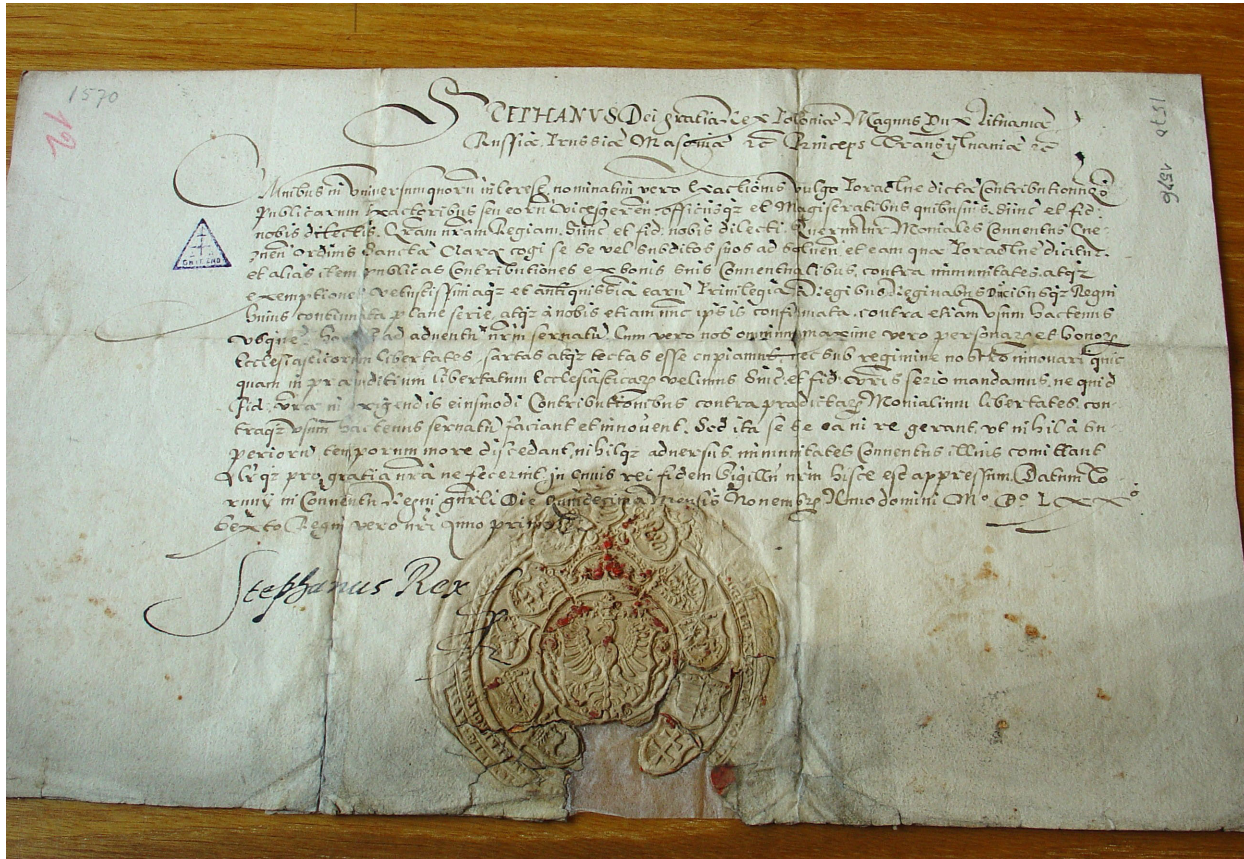 1570
12
1570
1576
STEPHANUS Dei gratia Rex Poloniæ Magnus Dux Lituaniæ
Russiæ Prussiæ Masoviæ etc Princeps Transylvaniæ etc
Omnibus in universum quorū interest, nominatim vero Exactionis vulgo Poradlne dictæ Contributionumq3
Publicarum Exactoribus seu eorū Vicesgeren: officijsq3 et Magistratibus quibusvis. Sinc. et fid:
nobis dilectis. Gram nram Regiam. Sinc. et fid. nobis dilecti. Queruntur Moniales Conventus Gne-
znen Ordinis Sanctæ Claræ cogi se se vel subditos suos ad solven. et eam quæ Poradlne dicitur.
et alias item publicas Contributiones ex bonis suis Conventualibus, contra immunitates, atq3
exemptiones vetustissimas et antiquissima earū Privilegia a Regibus Reginabus Ducibusq3 Regni
huius continuata plane serie, atq3 a nobis etiam nunc ipsis confirmata, contra etiam usum hactenus
usque ad adventū nrm servatū. Cum vero nos omnium maxime vero personarᵤ et bonorᵤ
Ecclesiasticorum libertates, sartas atq3 tectas esse cupiamus, nec sub regimine nostro innovari quic
quam in præiuditium libertatum Ecclesiasticarᵤ velimus Sinc. et fid. vris serio mandamus, ne quid
fid. vræ in exigendis eiusmodi Contributionibus contra prædictarᵤ Monialium libertates, con-
traq3 usum hactenus servatū faciant et innovent. Sed ita se se ea in re gerant, ut nihil à su-
periorū temporum more discedant, nihilq3 adversus immunitates Conventus illius comittant
Alrq3 pro gratia nra ne fecerint, in cuius rei fidem Sigillū nrm hisce est appressum. Datum To-
runij in Conventu Regni gnrli Die quindecima Mensis Novembrᵤ Anno domini Mᵒ. Dᵒ. LXXᵒ
Sexto Regni vero nri Anno primo
Stephanus Rex